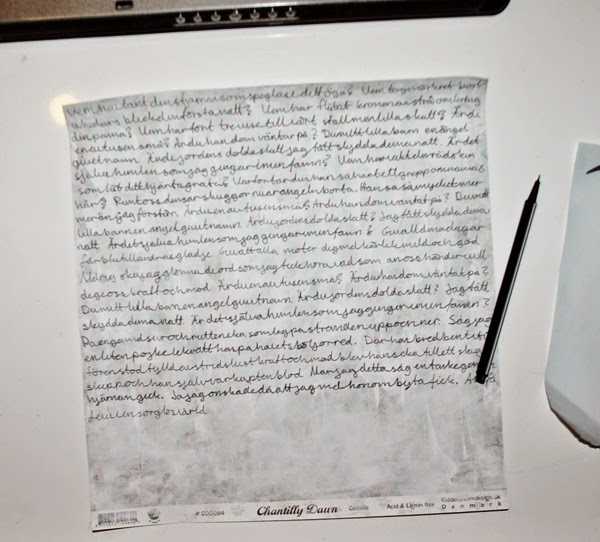 Vem har tänt den stjärna som speglas i ditt öga? Vem tog mörkret bort
och dars blicken förstanatt? Vem har flätat kronan av strå omkring
din panna? Vem har fört trevise till vårt stall min lilla skatt? Är du
en av tusen små? Är du han dom väntar på? Du mitt lilla barn en ängel
guvet namn. Är du jordens dolda skatt jag fått skydda denna natt. Är det
själva himlen som jag gungar i min famn? Vem har
som låt ditt hjärta gråta? Varför tar du han så hant ett grepp om
här? Runt oss dansar skuggor nu är ängeln borta. Han sa så mycket mer
mer än jag förstår. Är du en av tusen små? Är du han dom väntar på? Du mitt
lilla barn en ängel guvet namn. Är du jordens dolda skatt? Jag fått skydda denna
natt. Är det själva himlen som jag gungar i min famn?
Gud att alla möter dig med kärlek mild och god
Aldrig ska jag glömma de ord som jag fick höra vad som än oss händer vill
de ge oss kraft och mod. Är du en av tusen små? Är du han dom väntat på?
Du mitt lilla barn en ängel guvet namn. Är du jordens dolda skatt? Jag fått
skydda denna natt. Är det själva himlen som jag gungar i min famn?
På en gammal sur och rutten eka som låg på stranden upp och ner. Såg jag
en liten pojke lekvätt han på havets böljor red. Där han bred bent i
fören stod fylld av stredslust kraft och mod blev hans eka till ett skepp
skepp och han själv var kapten blod. När jag detta såg en tanke genom
hjärnan gick. Ja jag önskade då att jag med honom byta fick.
leka i en sorglös värld
# 000084 Chantilly Dawn Camilla Acid & Lignin free
Denmark